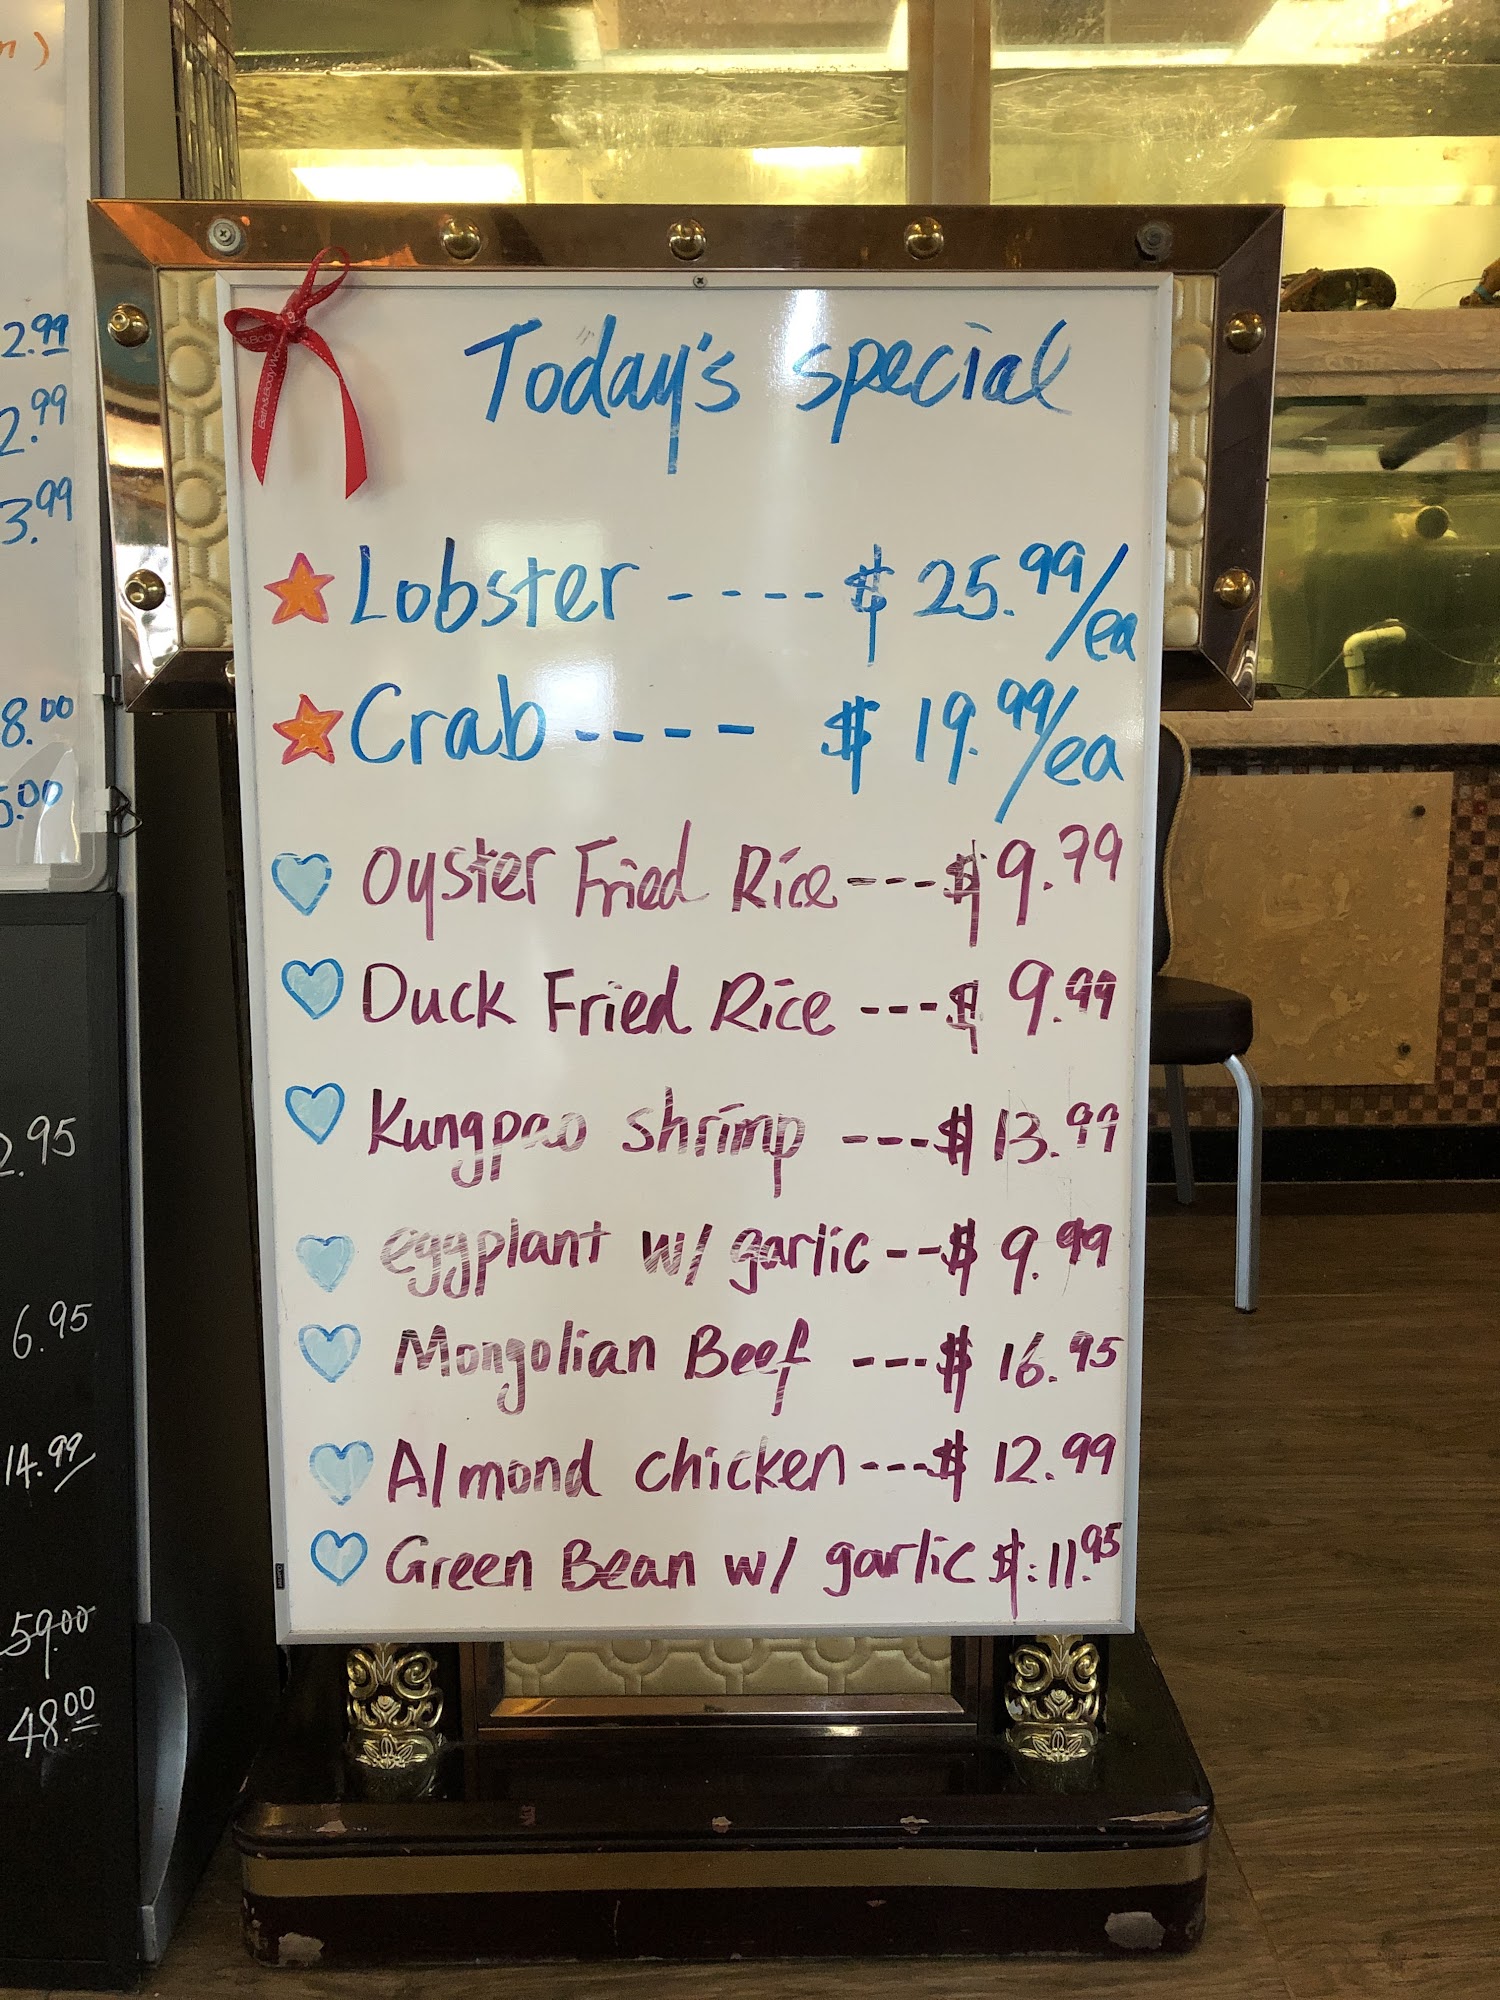 Today's special
Lobster ---- $ 25.99/ea
Crab ---- $ 19.99/ea
Oyster Fried Rice --- $ 9.79
Duck Fried Rice --- $ 9.99
Kungpao shrimp --- $ 13.99
eggplant w/ garlic -- $ 9.99
Mongolian Beef --- $ 16.95
Almond chicken --- $ 12.99
Green Bean w/ garlic $: 11.95
2.99
2.99
3.99
8.00
5.00
2.95
6.95
14.99
59.00
48.00